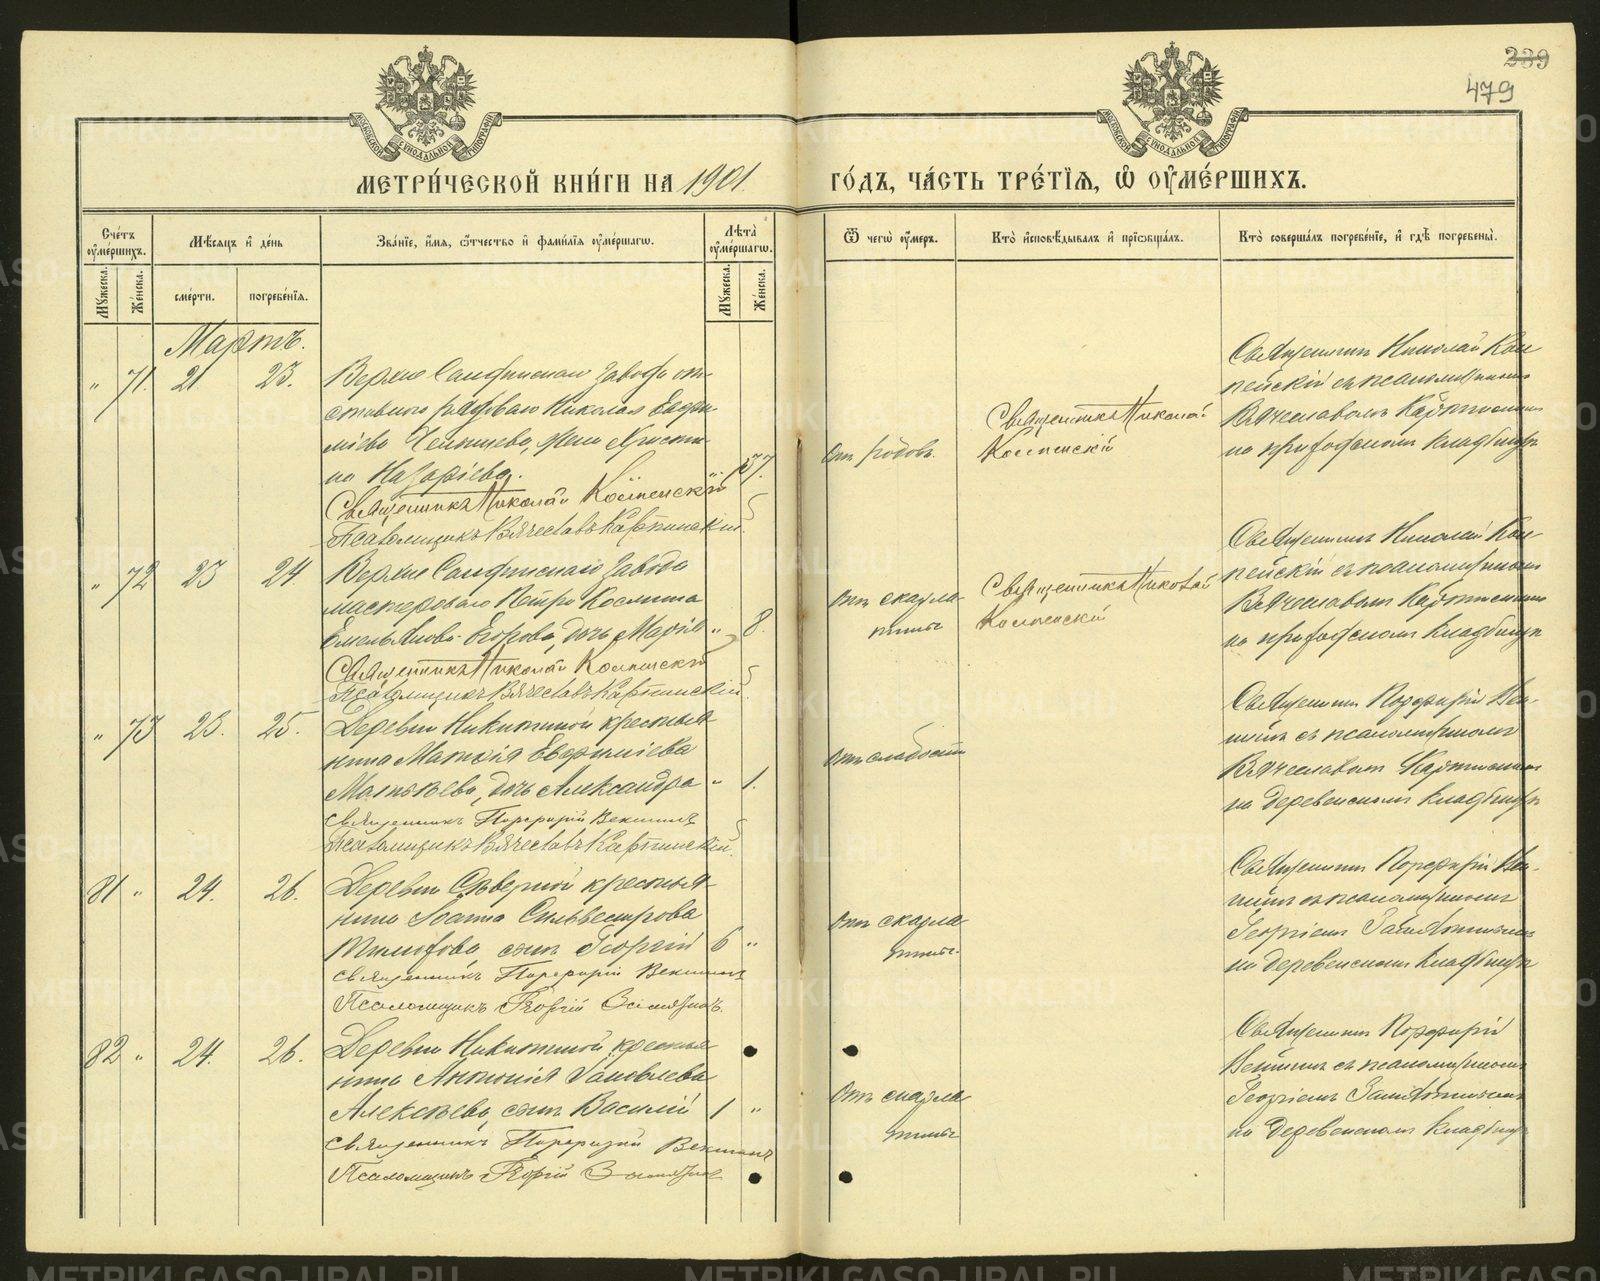 239
479
МОСКОВСКОЙ СѴНОДАЛЬНОЙ ТИПОГРАФІИ
МОСКОВСКОЙ СѴНОДАЛЬНОЙ ТИПОГРАФІИ
МЕТРИ́ЧЕСКОЙ КНИ́ГИ НА 1901
ГО́ДЪ, ЧА́СТЬ ТРЕ́ТІЯ, Ѽ ОУМЕ́РШИХЪ.
Сче́тъ оуме́ршихъ.
Мꙋ́жеска.
Же́нска.
Мѣ́сяцъ и҆ де́нь
сме́рти.
погребе́нїя.
Зва́нїе, и҆́мя, ѻ҆́тчество и҆ фами́лїя оуме́ршагѡ.
Лѣ́та оуме́ршагѡ.
Мꙋ́жеска.
Же́нска.
Ѿ чегѡ̀ оу́меръ.
Кто̀ и҆сповѣ́дывалъ и҆ прїѡбща́лъ.
Кто̀ соверша́лъ погребе́нїе, и҆ гдѣ̀ погребены̀.
Мартъ.
" 71. 21 23.
Верхне Санфинскаго завода от-
ставного рядового Николая Евфи-
міева жена Христи-
на Назаріева. " 37.
Священникъ Николай
Псаломщикъ Вячеславъ Карпинскій.
отъ родовъ.
Священникъ Николай
Священникъ Николай
пейскій съ псаломщикомъ
Вячеславомъ Карпинскимъ
на приходскомъ кладбищѣ
" 72 23 24
Верхне Санфинскаго завода
мастероваго Петра Космина
Емельянова-Егорова, дочь Марія " 8.
Священникъ Николай
Псаломщикъ Вячеславъ Карпинскій.
Отъ скарла-
тины
Священникъ Николай
Священникъ Николай
пейскій съ псаломщикомъ
Вячеславомъ Карпинскимъ
на приходскомъ кладбищѣ
" 73 23. 25.
Деревни Никитиной крестья-
нина Матѳія Евфиміева
дочь Александра " 1.
Священникъ Порфирій Векшинъ
Псаломщикъ Вячеславъ Карпинскій.
Отъ слабости
Священникъ Порфирій Век-
шинъ съ псаломщикомъ
Вячеславомъ Карпинскимъ
на деревенскомъ кладбищѣ
81 " 24. 26.
Деревни Сѣверной крестья-
нина Іоанна Сильвестрова
сынъ Георгій 6 "
Священникъ Порфирій Векшинъ
Псаломщикъ Георгій
Отъ скарла-
тины.
Священникъ Порфирій Век-
шинъ съ псаломщикомъ
Георгіемъ
на деревенскомъ кладбищѣ
82 " 24. 26.
Деревни Никитиной крестья-
нина Антонія Яковлева
Алексѣева, сынъ Василій 1 "
Священникъ Порфирій Векшинъ
Псаломщикъ Георгій
Отъ скарла-
тины
Священникъ Порфирій
Векшинъ съ псаломщикомъ
Георгіемъ
на деревенскомъ кладбищѣ
METRIKI.GASO-URAL.RU